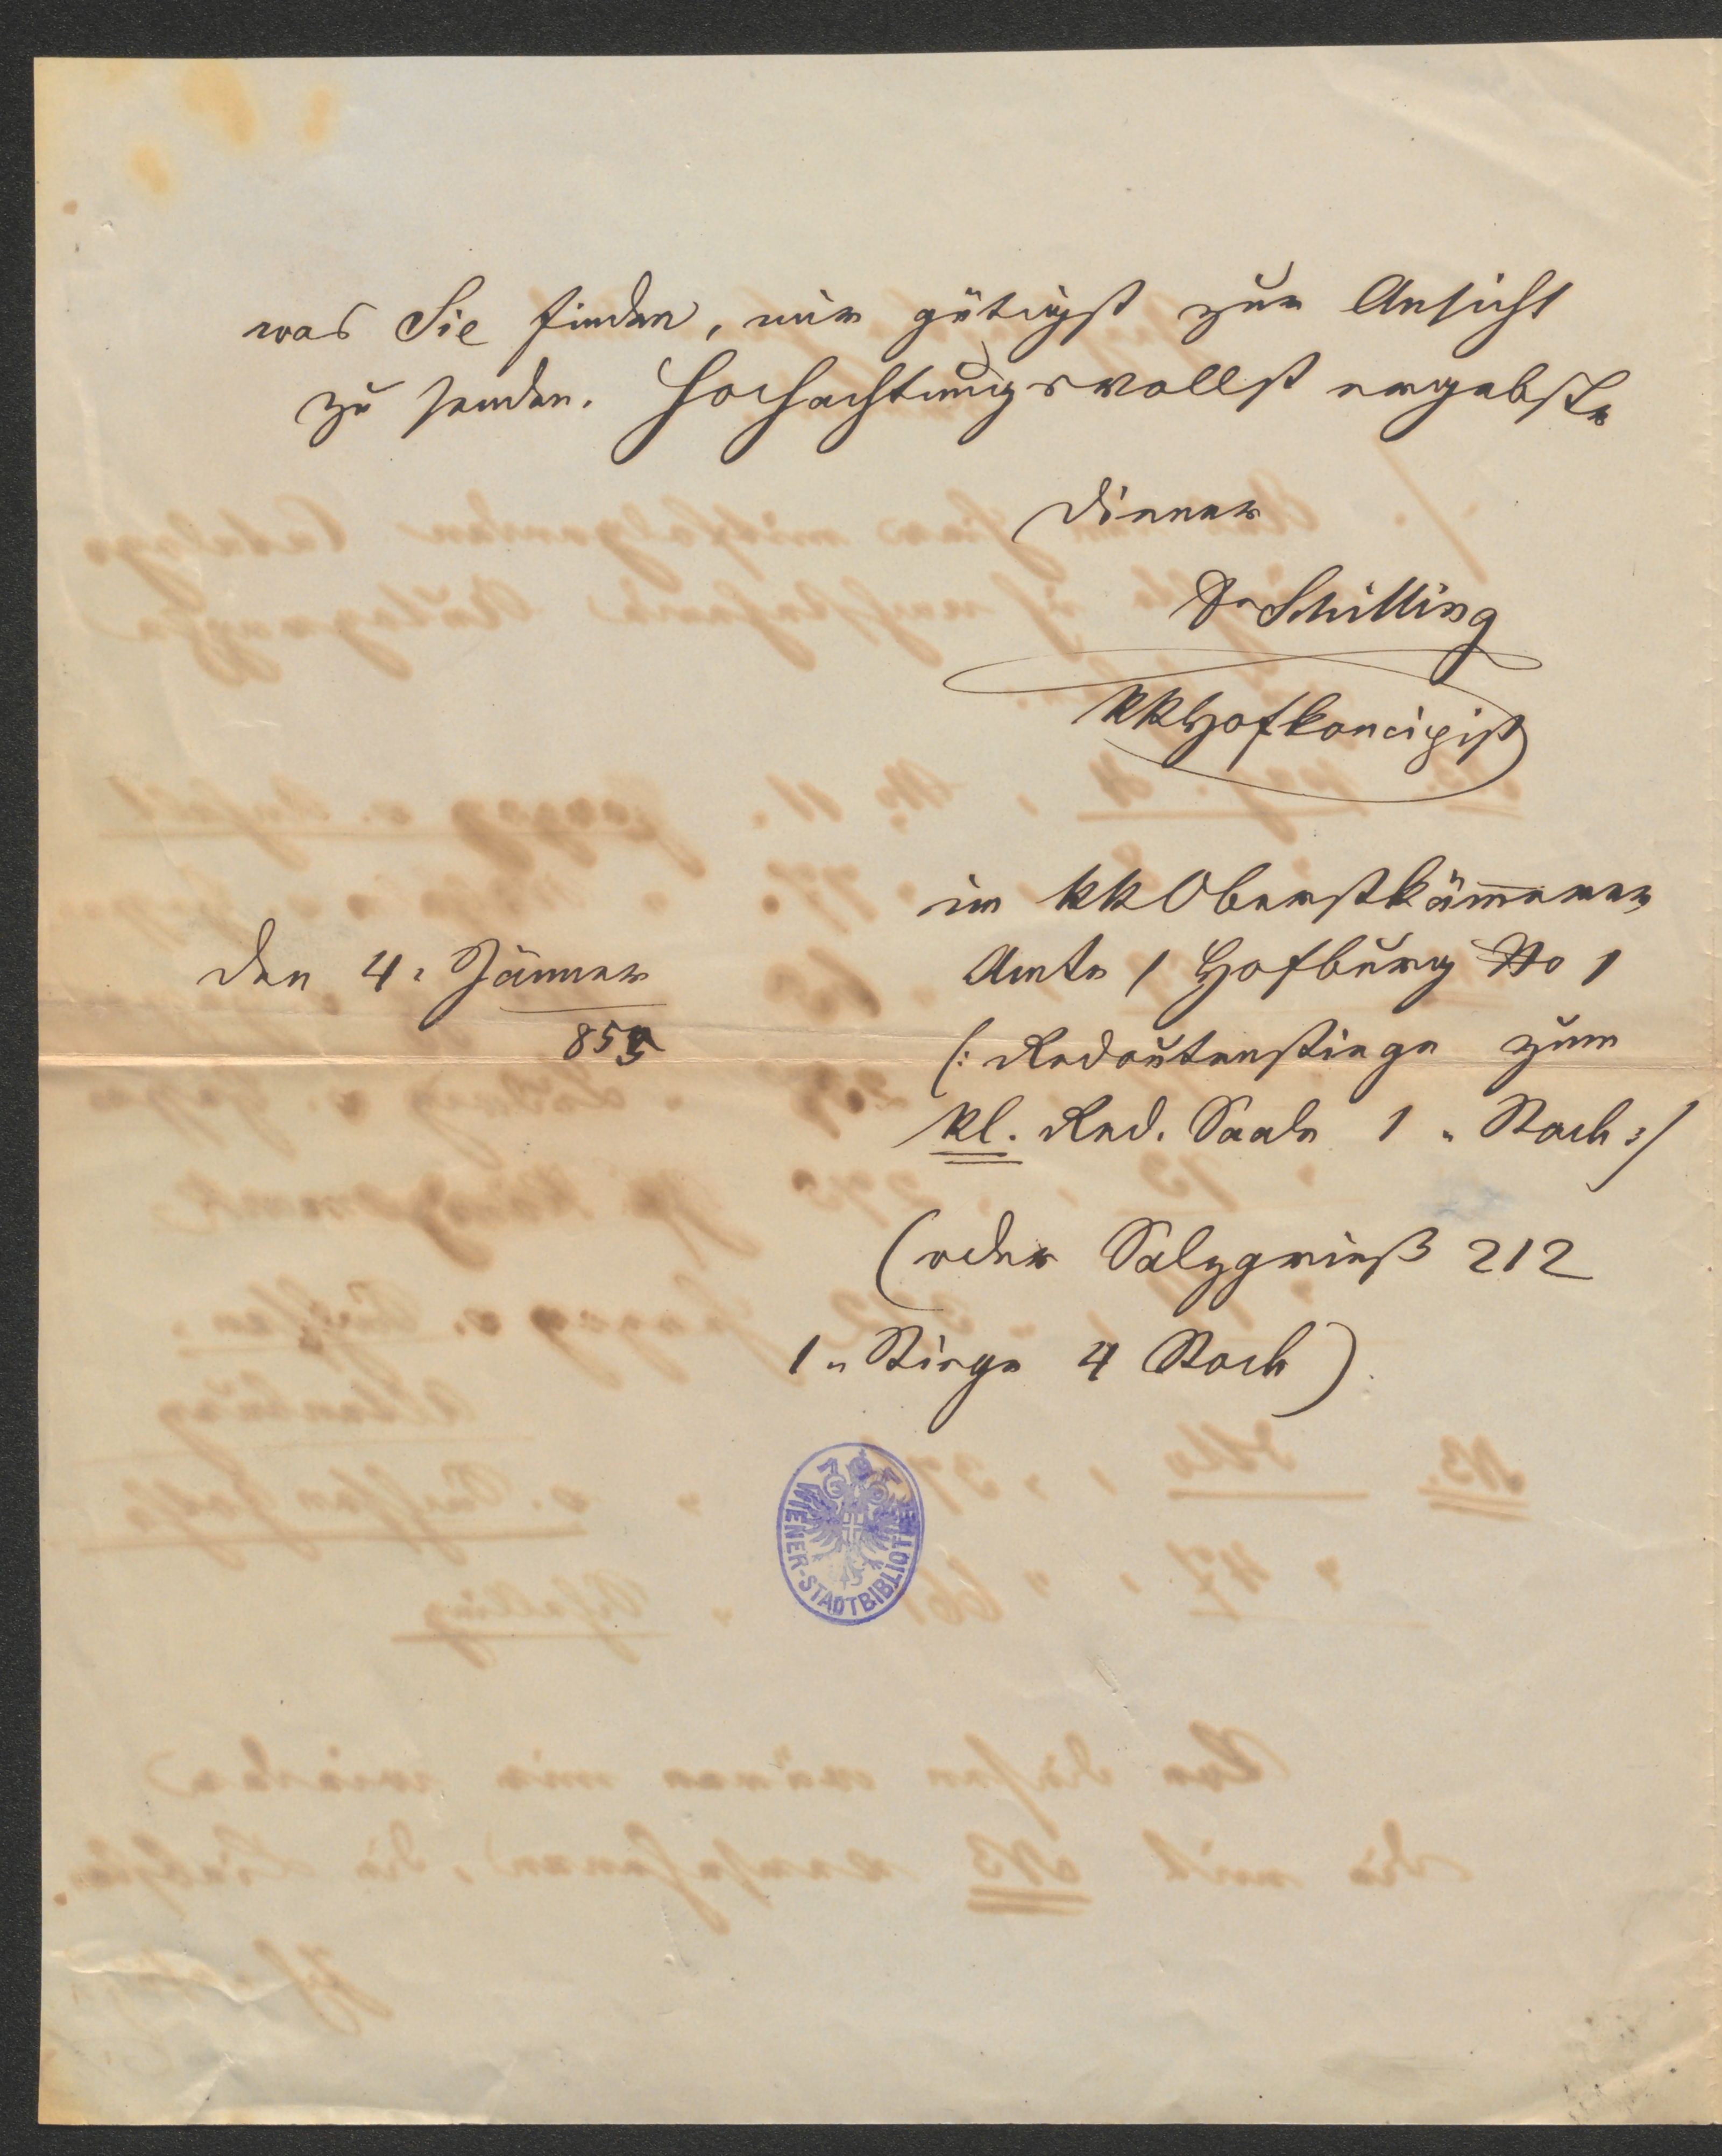 was Sie finden, mir gütigst zur Ansicht
zu senden. Hochachtungsvollst ergebster
Diener
Dr Schilling
KKHofkoncipist
im KK Oberstkäm̅erer
Amte / Hofburg No 1
den 4. Jänner
855
(: Redoutenstiege zum
kl. Red. Saale 1 " Stock :/
(oder Salzgrieß 212
1 " Stiege 4 Stock)
WIENER-STADTBIBLIOTHEK